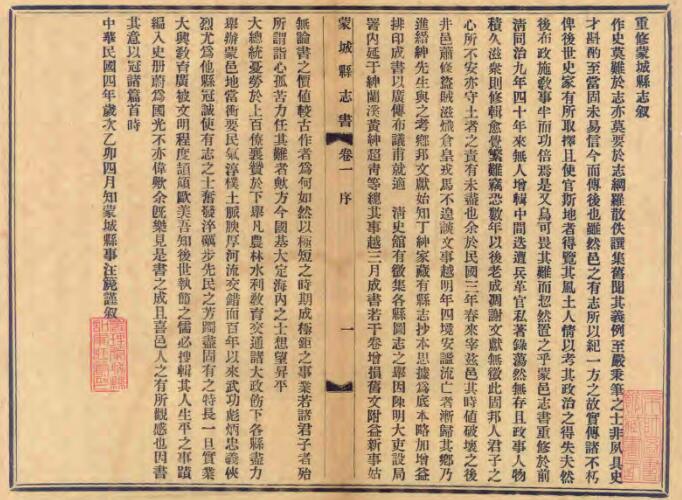 重修蒙城縣志叙
作史莫難於志亦莫要於志網羅散佚譔集舊聞其義例至嚴秉筆之士非夙具史
才斟酌至當固未易信今而傳後也雖然邑之有志所以紀一方之故實傳諸不朽
俾後世史家有所取擇且使官斯地者得覽其風土人情以考其政治之得失夫然
後布政施敎事半而功倍焉是又烏可畏其難而恝然置之乎蒙邑志書重修於前
淸同治九年四十年來無人增輯中間迭遭兵革官私著錄蕩然無存且政事人物
積久滋衆則修輯愈覺繁難竊恐數年以後老成凋謝文獻無徵此固邦人君子之
心所不安亦守土者之責有未盡也余於民國三年春來宰茲邑其時値破壞之後
井邑蕭修盜賊滋熾倉皇戎馬不遑談文事越明年四境安謐流亡者漸歸其鄕乃
進縉紳先生與之考鄕邦文獻始知丁紳家藏有縣志抄本思據爲底本略加增益
排印成書以廣傳布議甫就適 淸史館有徵集各縣圖志之舉因陳明大吏設局
署內延于紳蘭溪黃紳超靑等總其事越三月成書若干卷增損舊文附益新事姑
蒙城縣志書 卷一 序 一
無論書之價値較古作者爲何如然以極短之時期成極鉅之事業若諸君子者殆
所謂詣心孤苦力任其難者歟方今國基大定海內之士想望昇平
大總統憂勞於上百僚襄贊於下舉凡農林水利敎育交通諸大政飭下各縣盡力
舉辦蒙邑地當衝要民氣淳樸土脈腴厚河流交錯而百年以來武功彪炳忠義俠
烈尤爲他縣冠誠使有志之士奮發淬礪步先民之芳躅盡固有之特長一旦實業
大興敎育廣被文明程度頡頏歐美吾知後世執簡之儒必搜輯其人生平之事蹟
編入史册蔚爲國光不亦偉歟余旣樂見是書之成且喜邑人之有所觀感也因書
其意以冠諸篇首時
中華民國四年歲次乙卯四月知蒙城縣事汪箎謹叙